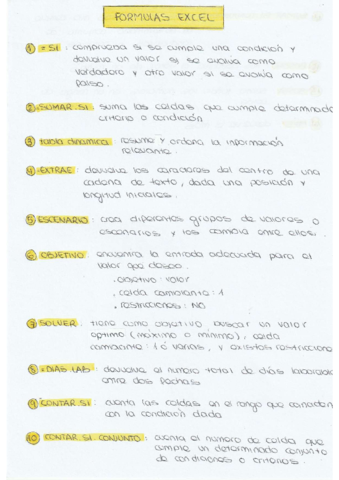 FORMULAS EXCEL
1 = SI : comprueba si se cumple una condición y
devuelve un valor si se evalúa como
verdadero y otro valor si se evalúa como
falso.
2 SUMAR.SI : suma las celdas que cumple determinado
criterio o condición
3 tabla dinamica : resume y ordena la información
relevante.
4 EXTRAE : devuelve los caracteres del centro de una
cadena de texto, dada una posición y
longitud iniciales.
5 ESCENARIO : crea diferentes grupos de valores o
escenarios y los cambia entre ellos.
6 OBJETIVO : encuentra la entrada adecuada para el
valor que deseo.
. objetivo : valor
. celda cambiante : 1
. restricciones : NO
7 SOLVER : tiene como objetivo buscar un valor
optimo (máximo o mínimo), celda
cambiante : 1 ó varias, y existos restriccione
8 =DIAS.LAB : devuelve el número total de días laborables
entre dos fechas
9 CONTAR.SI : cuenta las celdas en el rango que coinciden
con la condición dada
10 CONTAR.SI.CONJUNTO : cuenta el número de celda que
cumple un determinado conjunto
de condiciones o criterios.